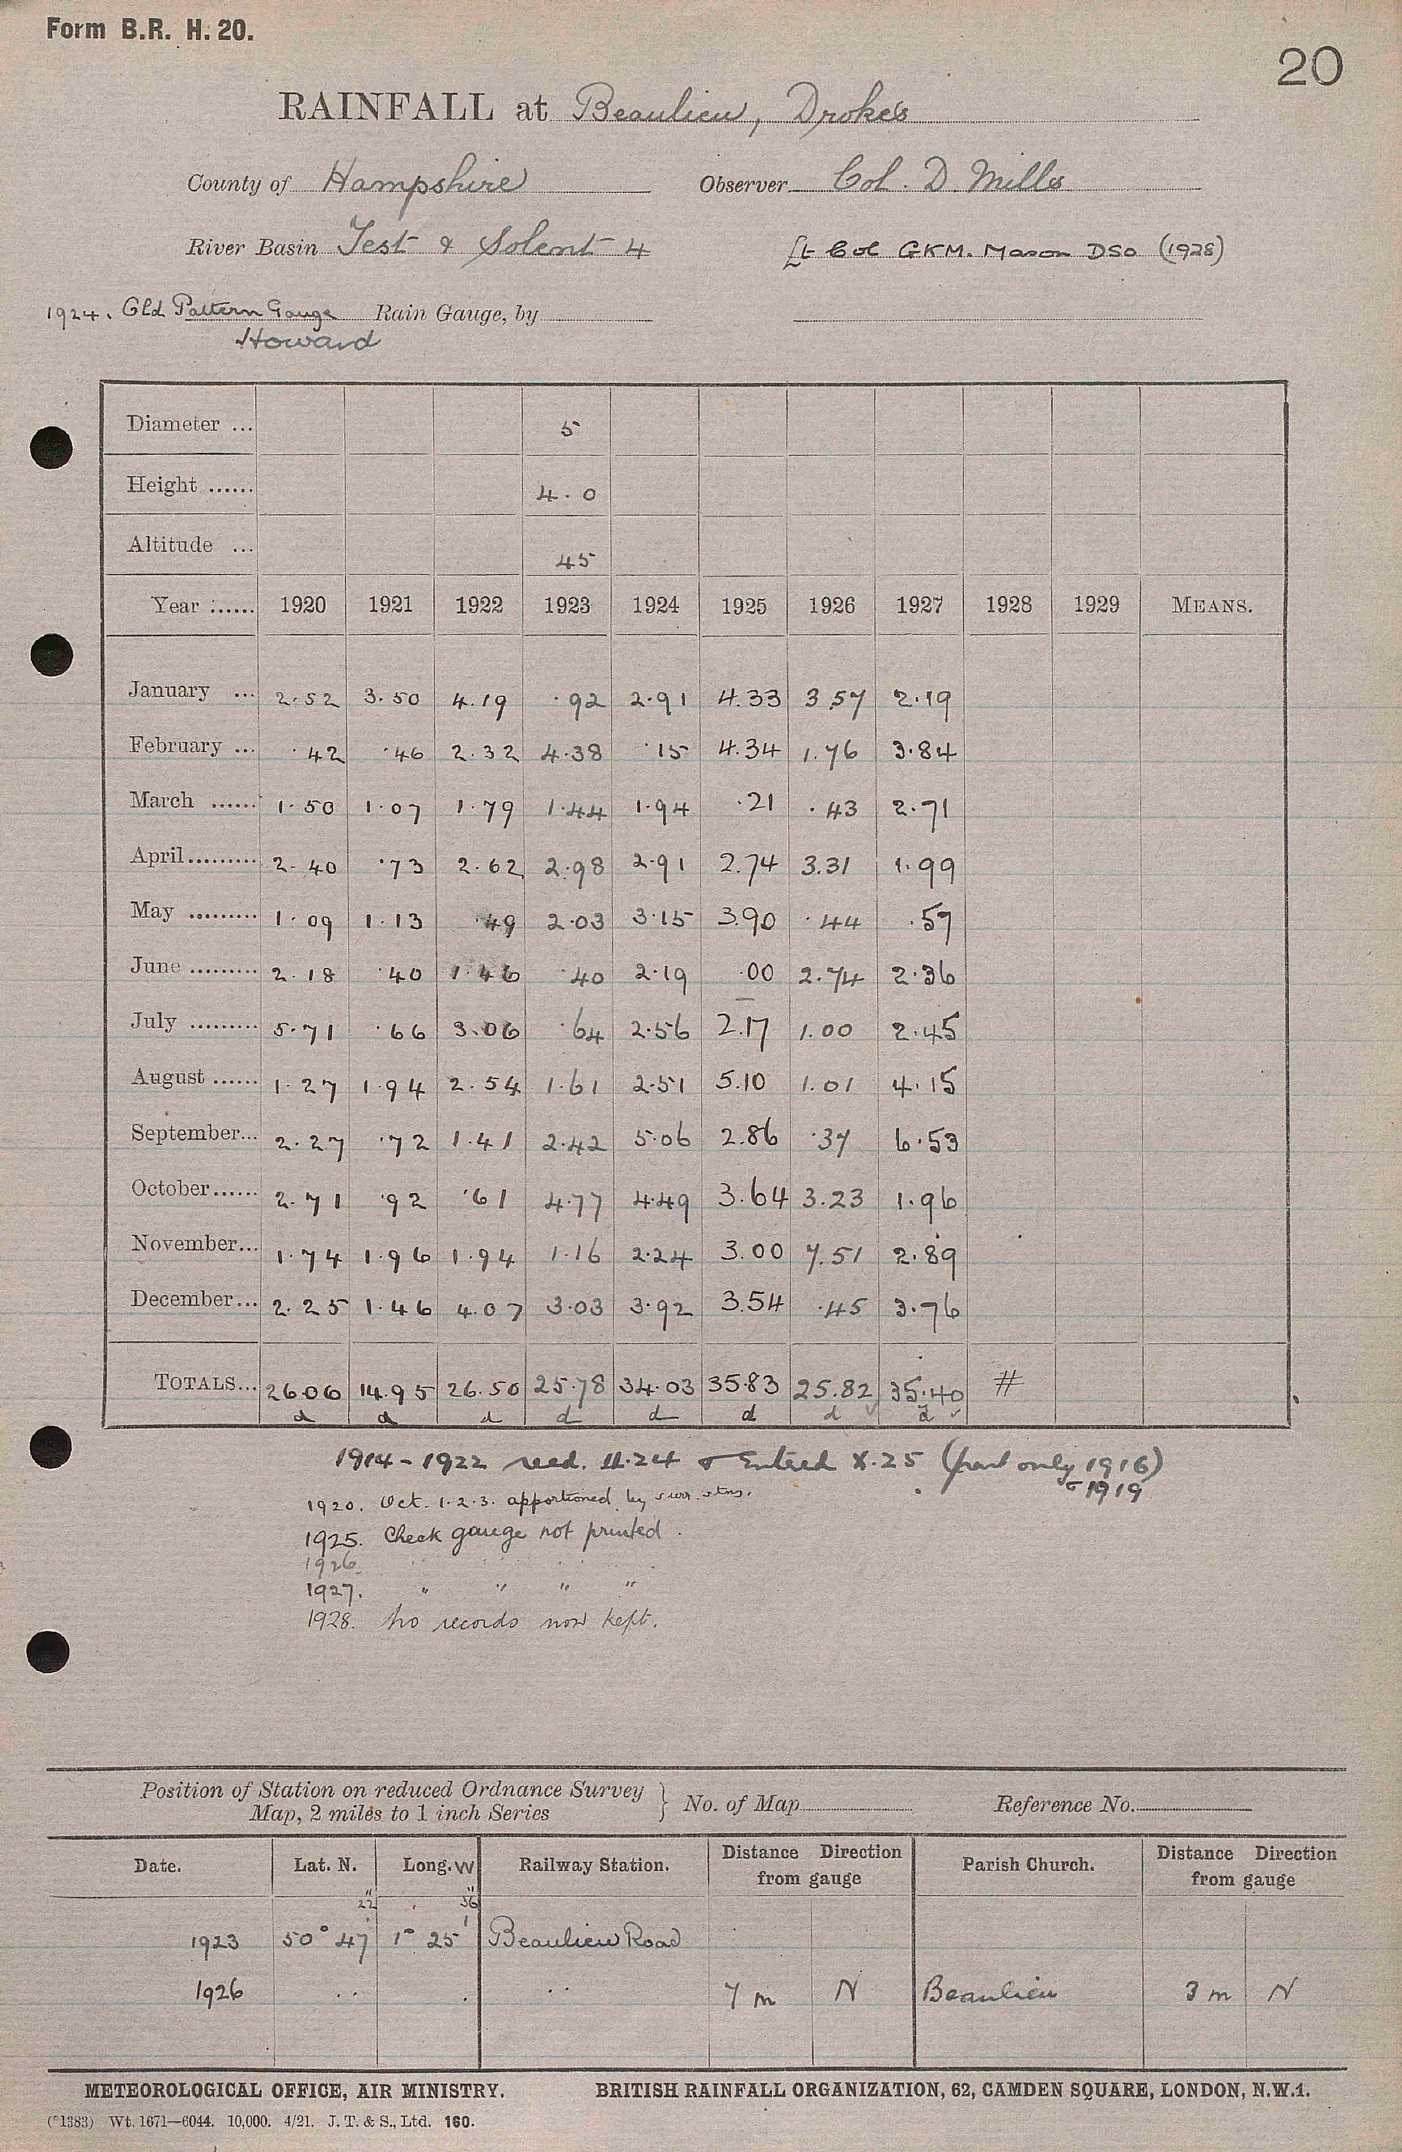 Form B.R. H. 20.
20
RAINFALL at Beaulieu, Drokes
County of Hampshire Observer Col. D. Mills
River Basin Test & Solent 4 Lt Col GKM. Mason DSO (1928)
1924. Old Pattern Gauge Rain Gauge, by
Howard
Diameter ... 5
Height ...... 4.0
Altitude ... 45
Year ...... 1920 1921 1922 1923 1924 1925 1926 1927 1928 1929 MEANS.
January ... 2.52 3.50 4.19 .92 2.91 4.33 3.57 2.19
February ... .42 .46 2.32 4.38 .15 4.34 1.76 3.84
March ...... 1.50 1.07 1.79 1.44 1.94 .21 .43 2.71
April......... 2.40 .73 2.62 2.98 2.91 2.74 3.31 1.99
May ......... 1.09 1.13 .49 2.03 3.15 3.90 .44 .57
June ......... 2.18 .40 1.46 .40 2.19 .00 2.74 2.36
July ......... 5.71 .66 3.06 .64 2.56 2.17 1.00 2.45
August ...... 1.27 1.94 2.54 1.61 2.51 5.10 1.01 4.15
September... 2.27 .72 1.41 2.42 5.06 2.86 .37 6.53
October...... 2.71 .92 .61 4.77 4.49 3.64 3.23 1.96
November... 1.74 1.96 1.94 1.16 2.24 3.00 7.51 2.89
December... 2.25 1.46 4.07 3.03 3.92 3.54 .45 3.76
TOTALS... 26.06 14.95 26.50 25.78 34.03 35.83 25.82 35.40 #
d d d d d d d ✓ d ✓
1914 - 1922 recd. II.24 & Entred X.25 (part only 1916)
& 1919
1920. Oct. 1.2.3. apportioned by surr. stns.
1925. Check gauge not printed.
1926. " " " "
1927. " " " "
1928. No records now kept.
Position of Station on reduced Ordnance Survey
Map, 2 miles to 1 inch Series } No. of Map Reference No.
Date. Lat. N. Long. W Railway Station. Distance Direction from gauge Parish Church. Distance Direction from gauge
22" 36"
1923 50° 47' 1° 25' Beaulieu Road
1926 .. . .. 7 m N Beaulieu 3 m N
METEOROLOGICAL OFFICE, AIR MINISTRY. BRITISH RAINFALL ORGANIZATION, 62, CAMDEN SQUARE, LONDON, N.W.1.
(*1383) Wt. 1671—6044. 10,000. 4/21. J. T. & S., Ltd. 160.